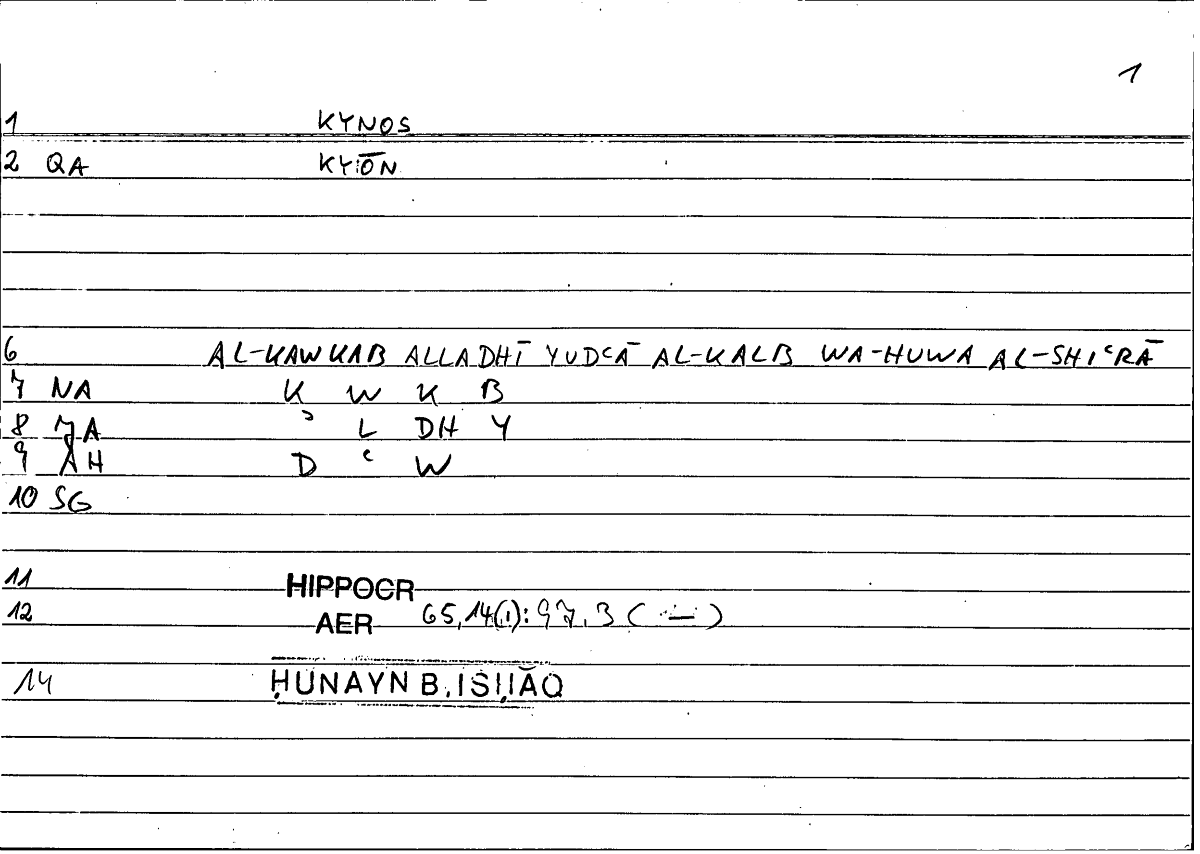 1
1 KYNOS
2 QA KYŌN
6 AL-KAWKAB ALLADHĪ YUDʿĀ AL-KALB WA-HUWA AL-SHIʿRĀ
7 NA K W K B
8 JA ʾ L DH Y
9 AH D ʿ W
10 SG
11 HIPPOCR
12 AER 65,14(1): 97,3 ( — )
14 ḤUNAYN B. ISḤĀQ